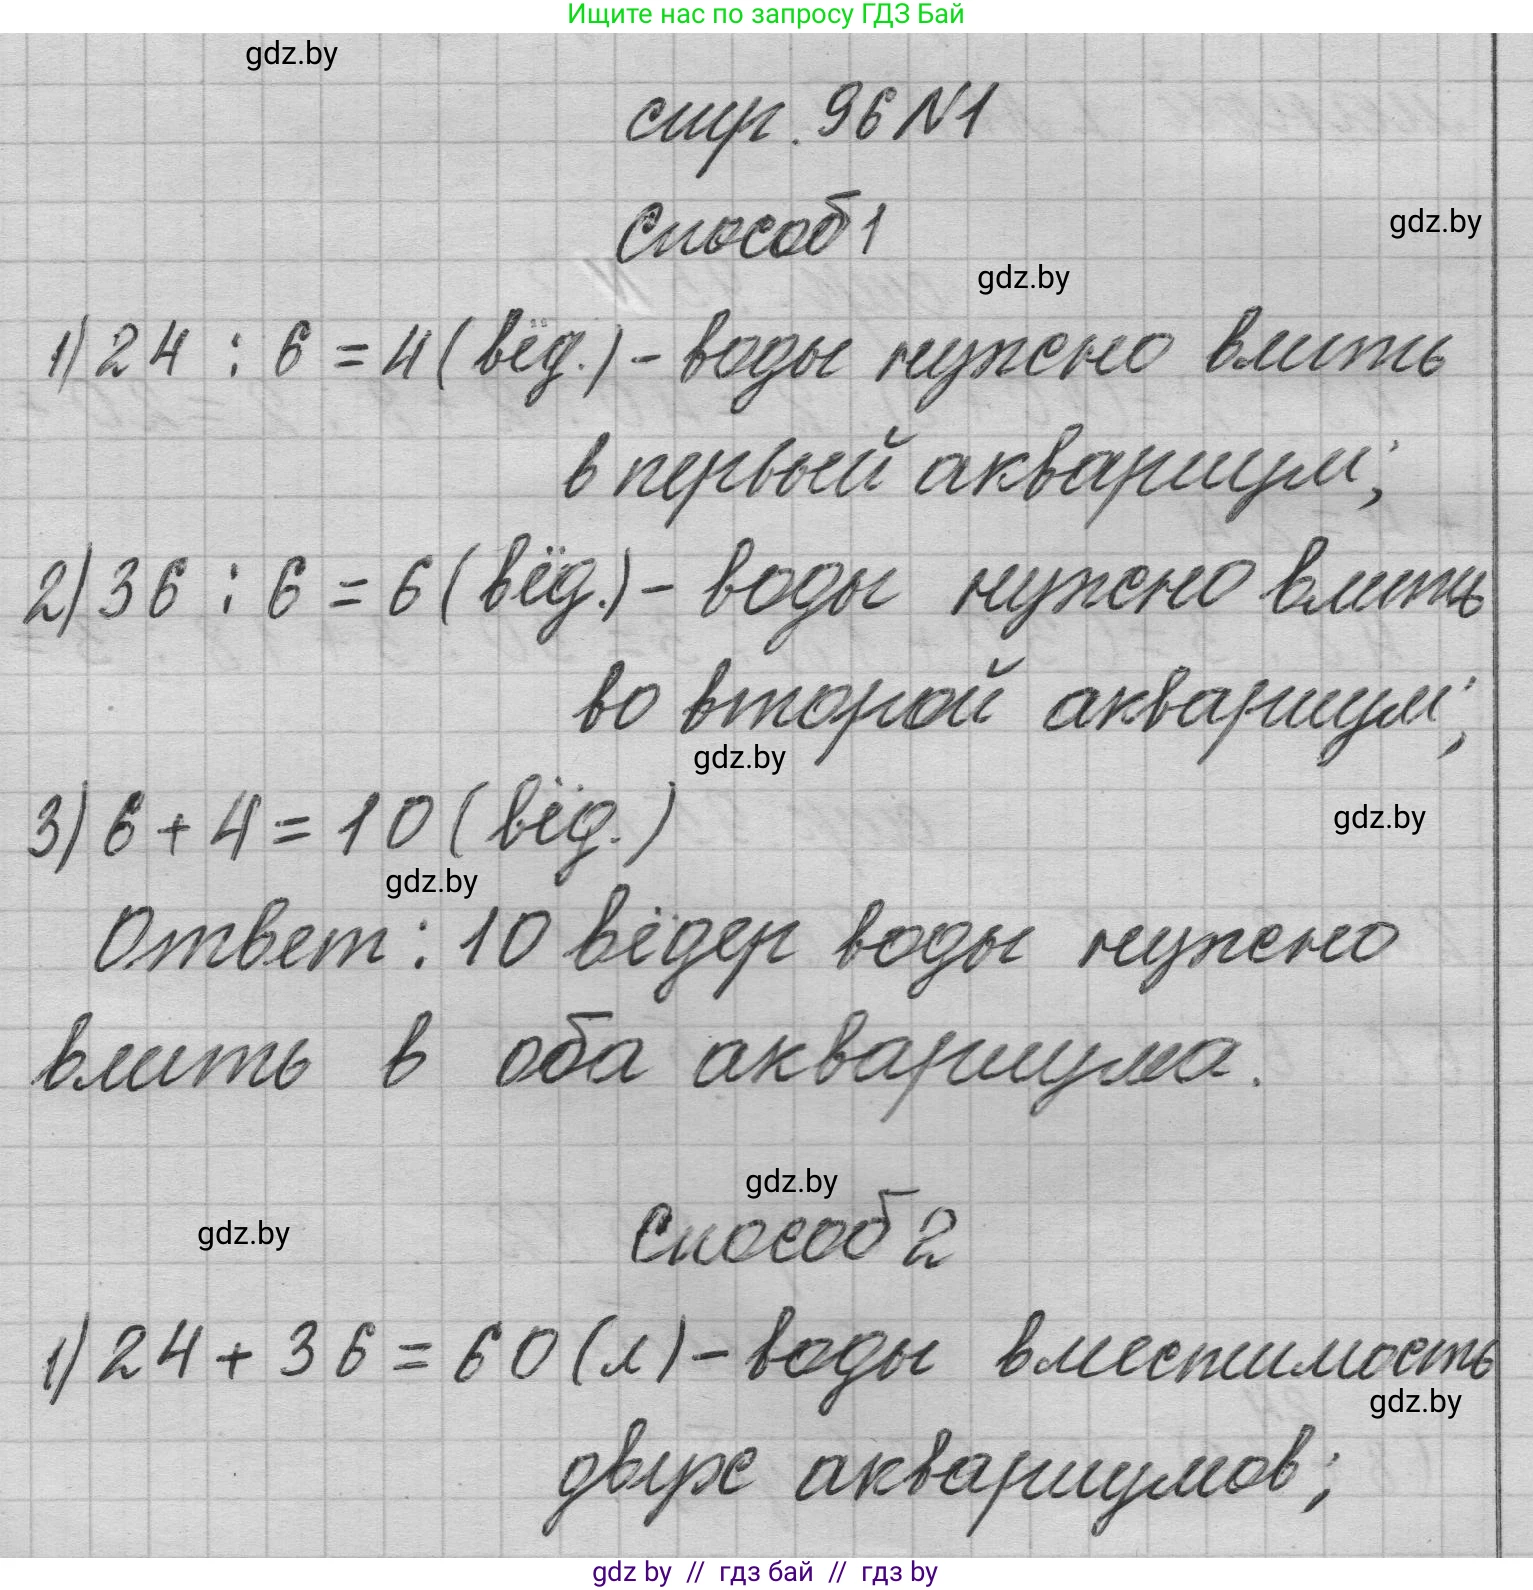 Ищите нас по запросу ГДЗ Бай
gdz.by
стр. 96 №1
Способ 1
gdz.by
gdz.by
1) 24 : 6 = 4 (вёд.) - воды нужно влить
в первый аквариум;
2) 36 : 6 = 6 (вёд.) - воды нужно влить
во второй аквариум;
gdz.by
3) 6 + 4 = 10 (вёд.)
gdz.by
gdz.by
Ответ: 10 вёдер воды нужно
влить в оба аквариума.
gdz.by
gdz.by
Способ 2
1) 24 + 36 = 60 (л) - воды вместимость
gdz.by
двух аквариумов;
gdz by // гдз бай // гдз by